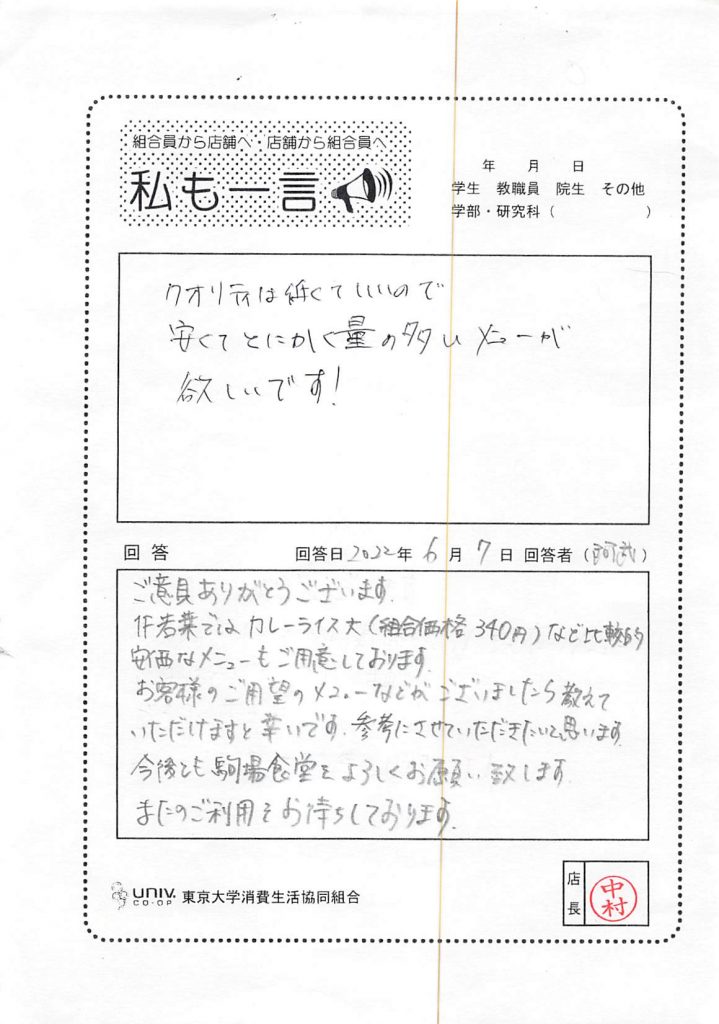 組合員から店舗へ・店舗から組合員へ
私も一言
年 月 日
学生 教職員 院生 その他
学部・研究科（ ）
クオリティは低くていいので
安くてとにかく量の多いメニューが
欲しいです!
回答 回答日 2022年 6月 7日 回答者（阿武）
ご意見ありがとうございます.
では カレーライス大(組合価格 340円)など比較的
安価なメニューもご用意しております.
お客様のご用望のメニューなどがございましたら教えて
いただけますと幸いです. 参考にさせていただきたいと思います.
今後とも駒場食堂をよろしくお願い致します.
またのご利用をお待ちしております.
UNIV. CO-OP 東京大学消費生活協同組合
店長 中村